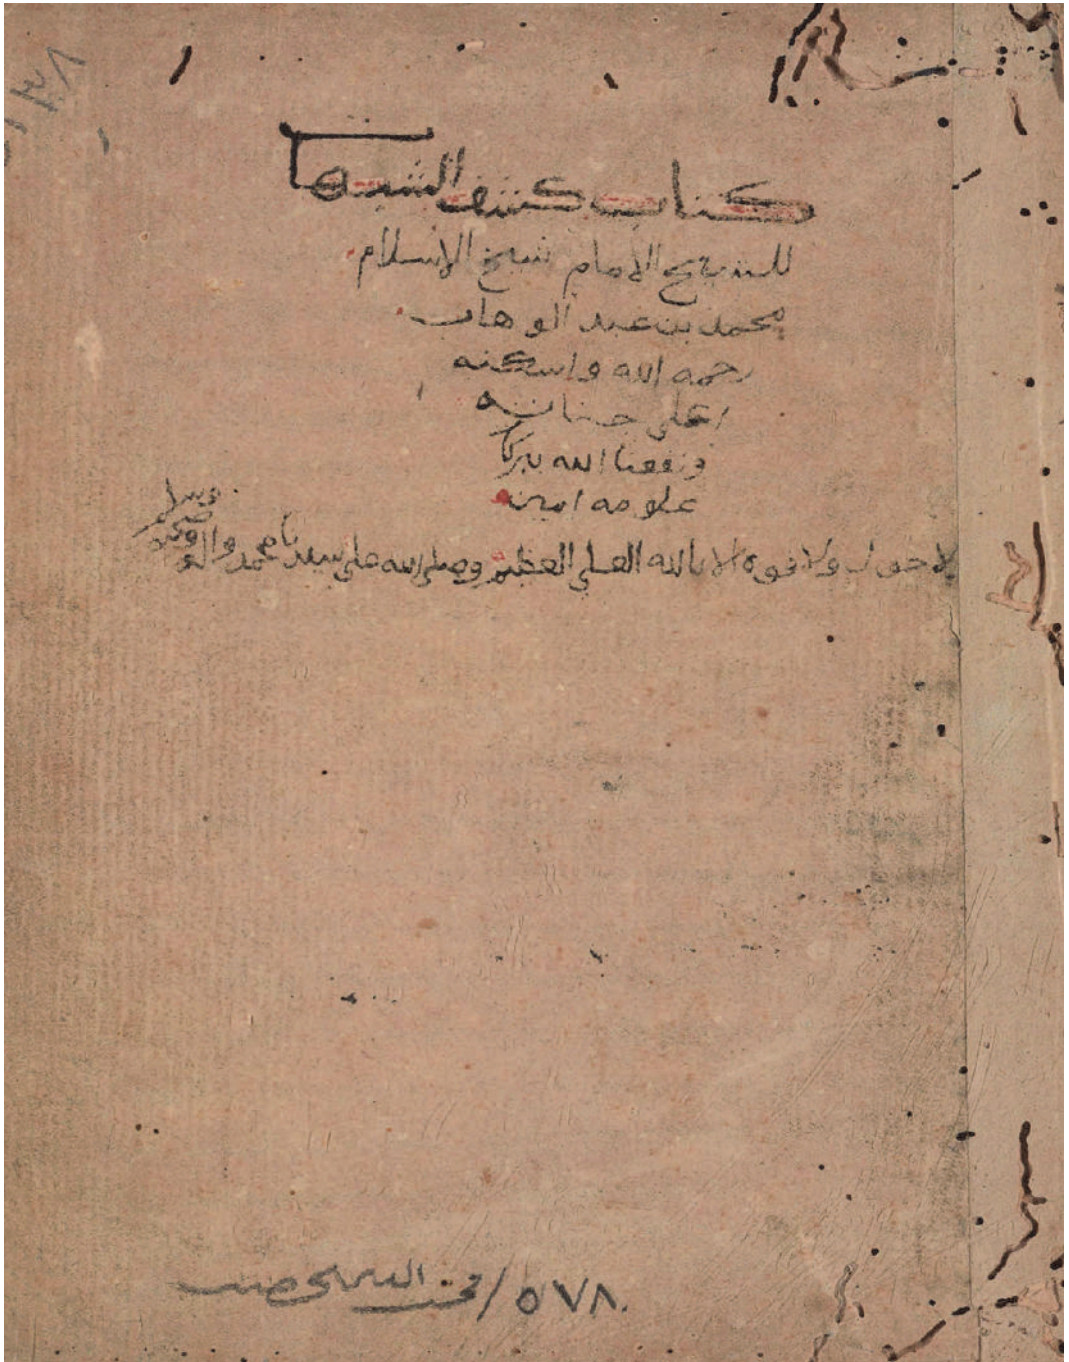 كتاب كشف الشبهات
للشيخ الامام شيخ الاسلام
محمد بن عبد الوهاب
رحمه الله واسكنه
اعلى جنانه
ونفعنا الله ببركا
علومه امين
لا حول ولا قوة الا بالله العلي العظيم وصلى الله على سيدنا محمد واله وصحبه وسلم
٥٧٨ /